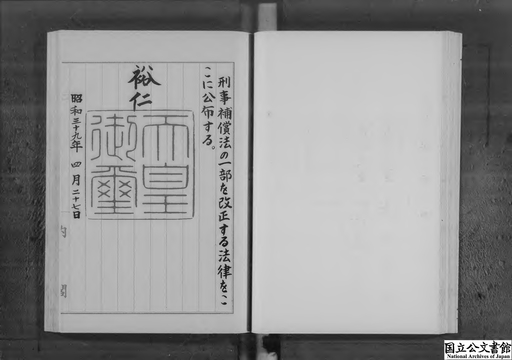 刑事補償法の一部を改正する法律をこ
こに公布する。
裕仁
天皇
御璽
昭和三十九年 四月二十七日
内
閣
国立公文書館
National Archives of Japan